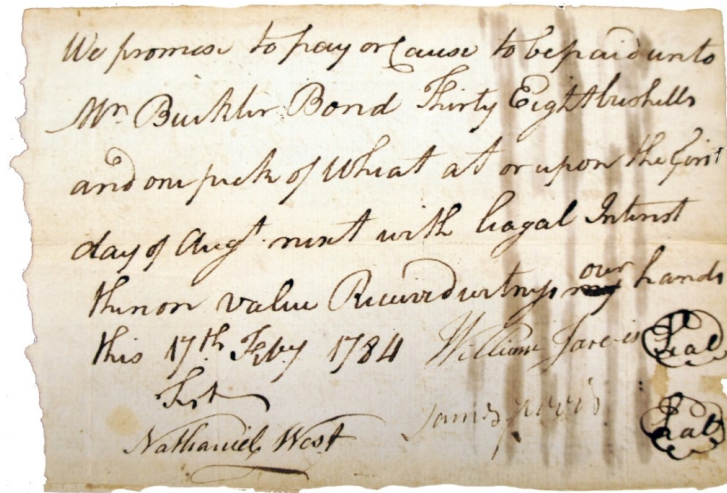 We promise to pay or Cause to be paid unto
Mr Buckler Bond Thirty Eight bushells
and one peck of Wheat at or upon the first
day of Augt next with Leagal Interest
thereon value Received witness our hands
this 17th Feby 1784 William Jarvis Seal
Test James Jarvis Seal
Nathaniel West